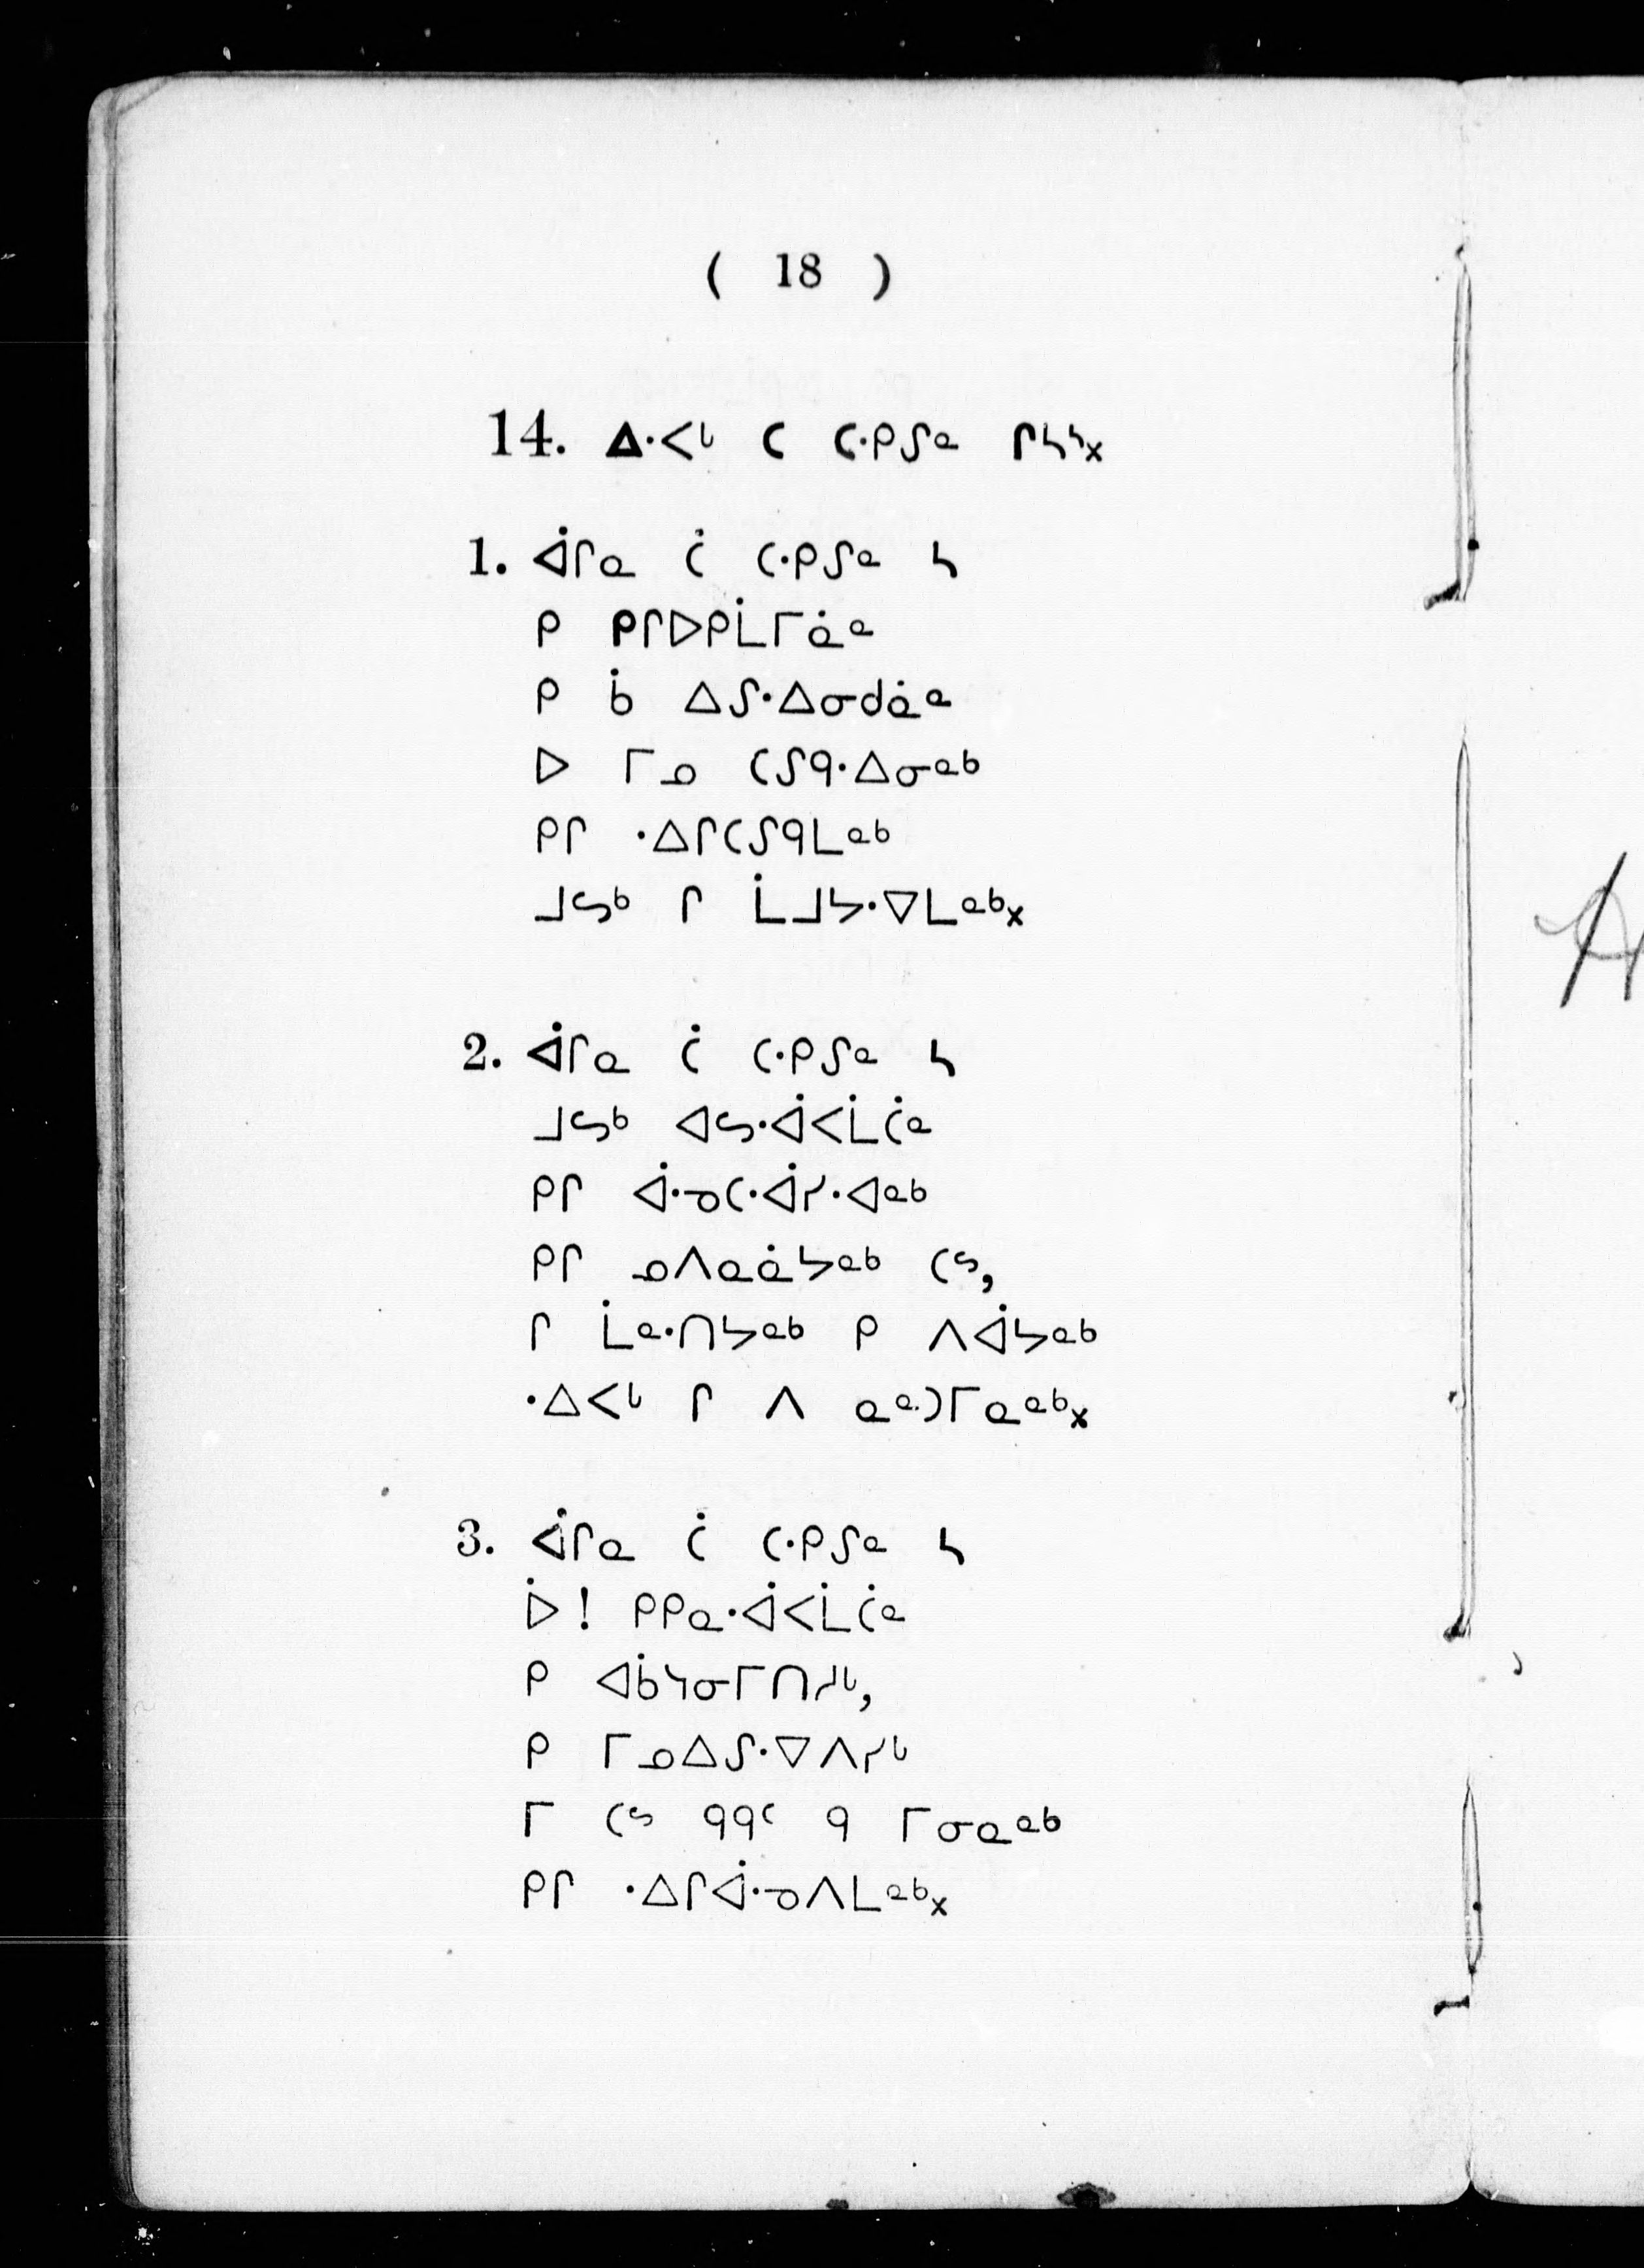 ( 18 )
14. ᐃ·ᐸᒡ ᑕ ᑕ·ᑭᔑᓐ ᒋᓴᓴ᙮
1. ᐋᒋᓇ ᑖ ᑕ·ᑭᔑᓐ ᓴ
ᑭ ᑭᒋᐅᑭᒫᒥᓈᓐ
ᑭ ᑳ ᐃᔑ·ᐃᓂᑯᓈᓐ
ᐅ ᒥᓄ ᑕᔑᑫ·ᐃᓂᓐᒃ
ᑭᒋ ·ᐃᒋᑕᔑᑫᒪᓐᒃ
ᒧᔕᒃ ᒋ ᒫᒧᔭ·ᐁᒪᓐᒃ᙮
2. ᐋᒋᓇ ᑖ ᑕ·ᑭᔑᓐ ᓴ
ᒧᔕᒃ ᐊᔕ·ᐋᐸᒫᑖᓐ
ᑭᒋ ᐋ·ᓀᑕ·ᐋᓯ·ᐊᓐᒃ
ᑭᒋ ᓄᐱᓇᓈᔭᓐᒃ ᑕᔥ,
ᒋ ᒫᓐ·ᑎᔭᓐᒃ ᑭ ᐱᐋᔭᓐᒃ
·ᐃᐸᒡ ᒋ ᐱ ᓇᓐ·ᑐᒥᓇᓐᒃ᙮
3. ᐋᒋᓇ ᑖ ᑕ·ᑭᔑᓐ ᓴ
ᐆ! ᑭᑭᓇ·ᐋᐸᒫᑖᓐ
ᑭ ᐊᑳᓴᓂᒥᑎᓱᒡ,
ᑭ ᒥᓄᐃᔑ·ᐁᐱᓯᒡ
ᒥ ᑕᔥ ᑫᑫᑦ ᑫ ᒥᓂᓇᓐᒃ
ᑭᒋ ·ᐃᒋᐋ·ᓀᐱᒪᓐᒃ᙮